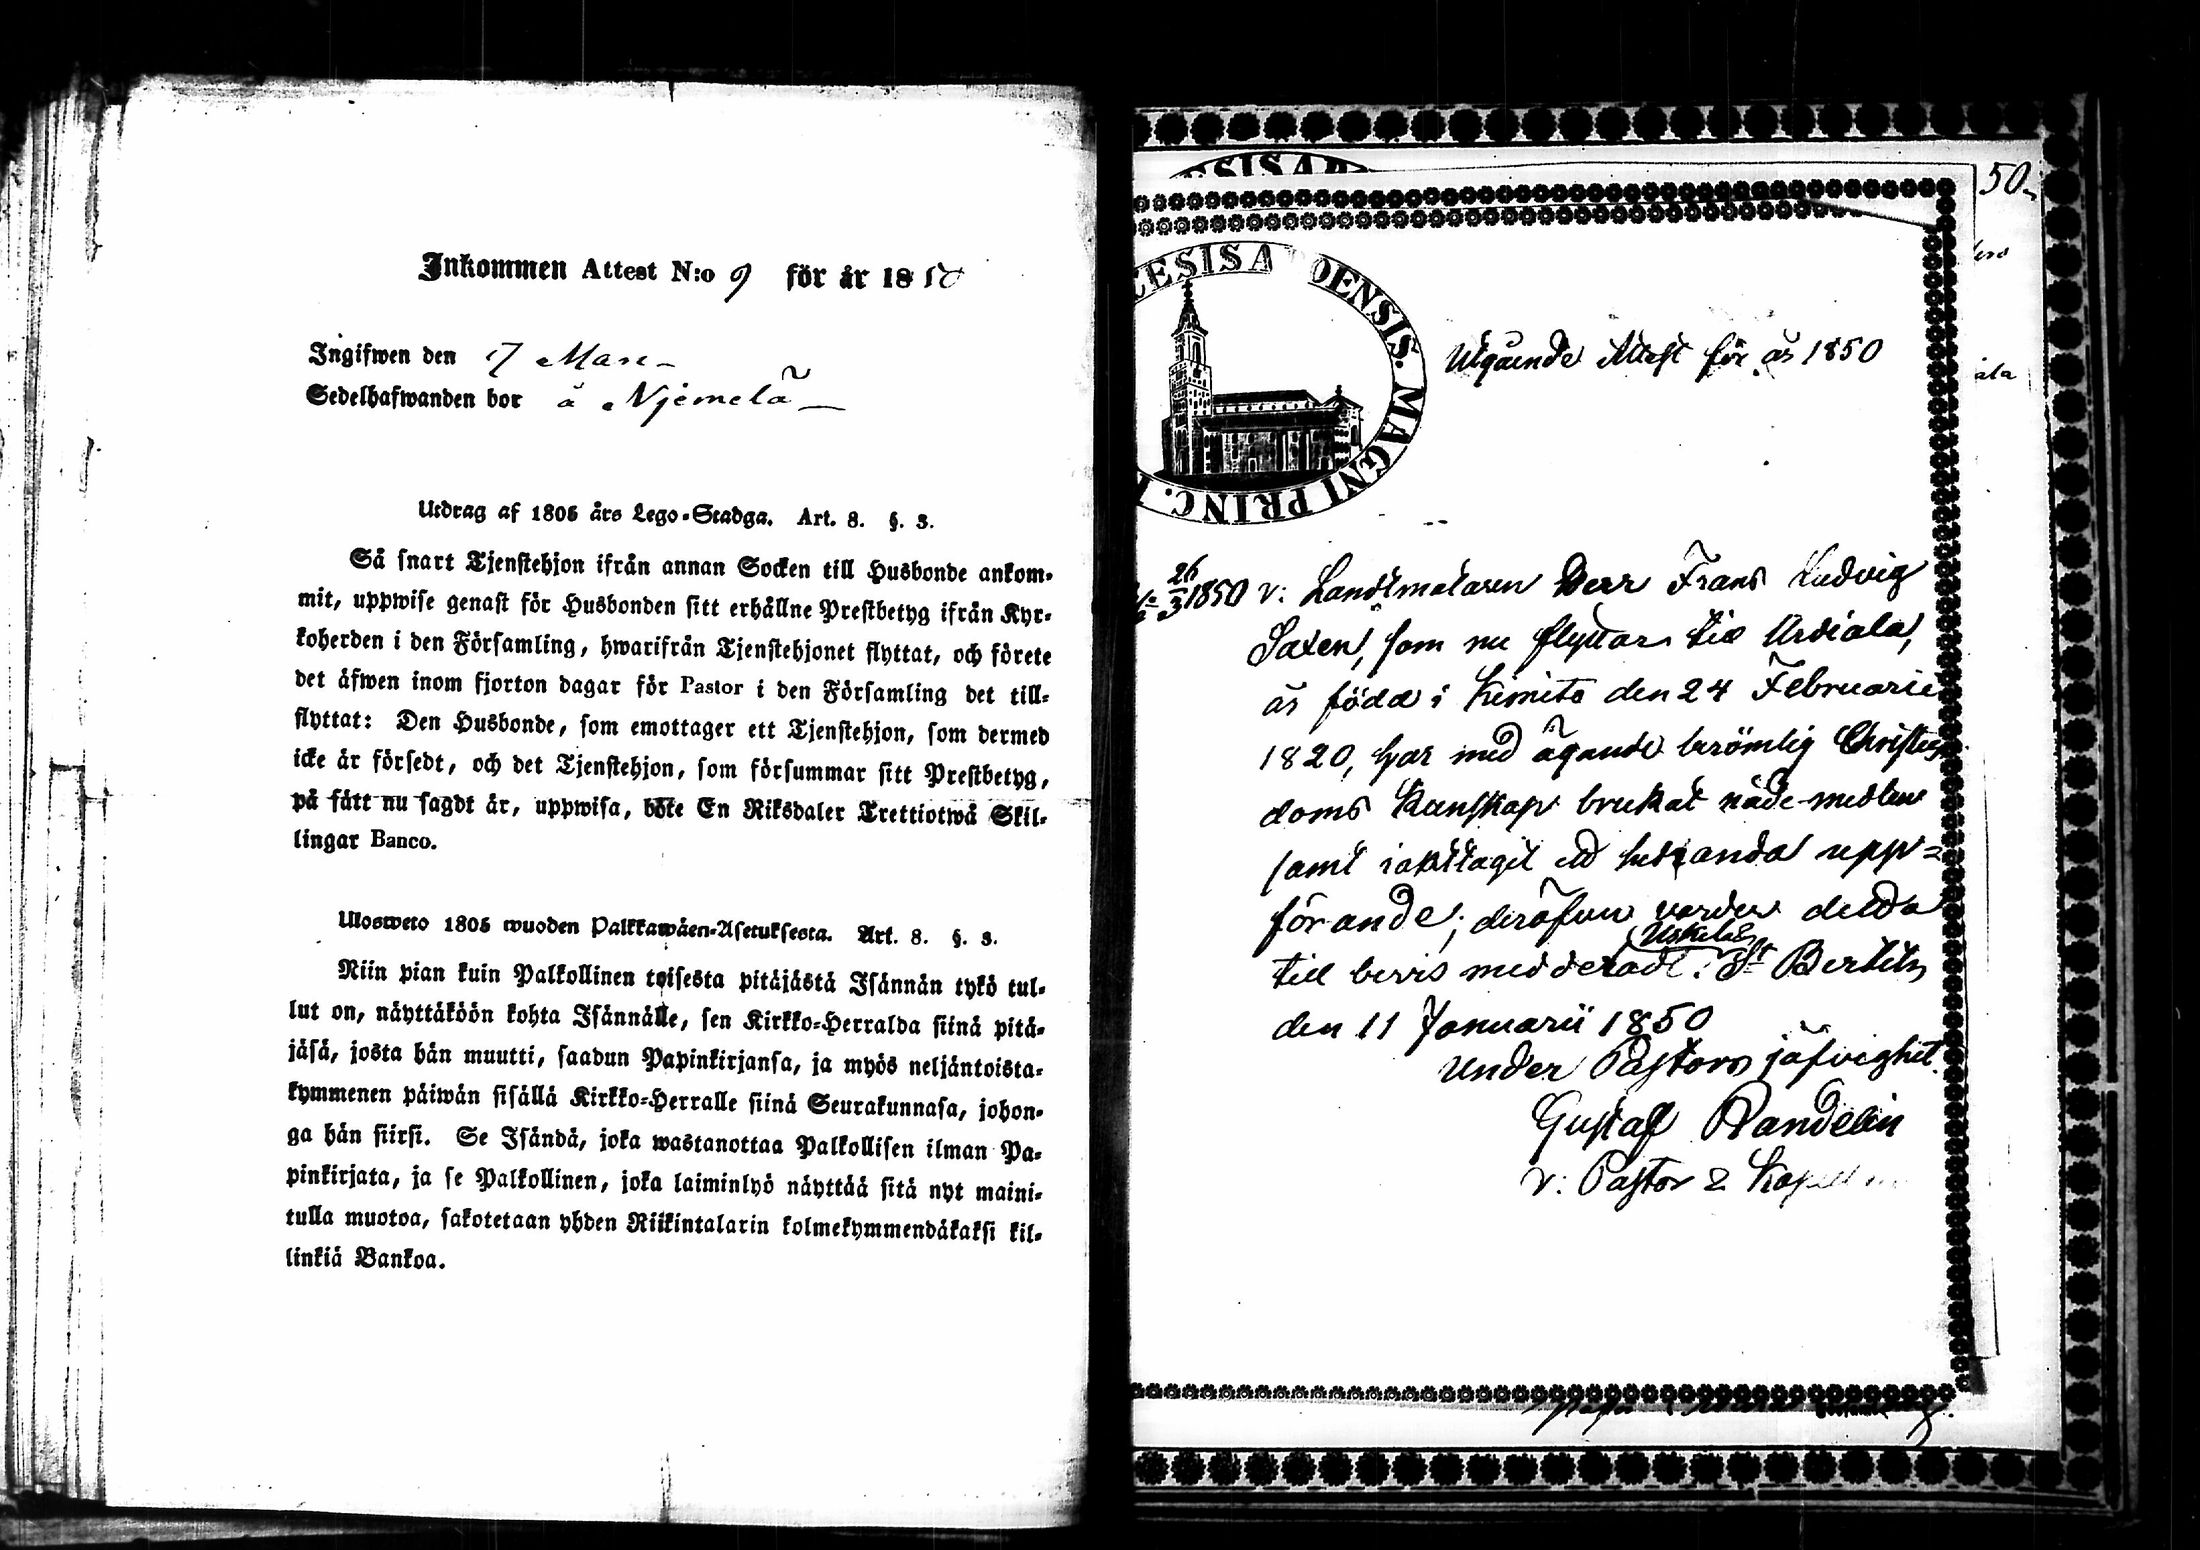 Inkommen Attest N:o 9 för år 1850
Ingifwen den 7 Mars
Sedelhafwanden bor å Njemelä
Utdrag af 1805 års Lego-Stadga. Art. 8. §. 3.
Så snart Tjenstehjon ifrån annan Socken till Husbonde ankom-
mit, uppwise genast för Husbonden sitt erhållne Prestbetyg ifrån Kyr-
koherden i den Församling, hwarifrån Tjenstehjonet flyttat, och förete
det äfwen inom fjorton dagar för Pastor i den Församling det till-
flyttat: Den Husbonde, som emottager ett Tjenstehjon, som dermed
icke är försedt, och det Tjenstehjon, som försummar sitt Prestbetyg,
på sätt nu sagdt är, uppwisa, böte En Riksdaler Trettiotwå Skil-
lingar Banco.
Ulosweto 1805 wuoden Palkkawäen-Asetuksesta. Art. 8. §. 3.
Niin pian kuin Palkollinen toisesta pitäjästä Isännän tykö tul-
lut on, näyttäköön kohta Isännälle, sen Kirkko-Herralda siinä pitä-
jäsä, josta hän muutti, saadun Papinkirjansa, ja myös neljäntoista-
kymmenen päiwän sisällä Kirkko-Herralle siinä Seurakunnasa, johon-
ga hän siirsi. Se Isändä, joka wastanottaa Palkollisen ilman Pa-
pinkirjata, ja se Palkollinen, joka laiminlyö näyttää sitä nyt maini-
tulla muotoa, sakotetaan yhden Riikintalarin kolmekymmendäkaksi kil-
linkiä Bankoa.
50
ESIS AB
CESIS A OENSIS. MAGNI PRINC.
Utgående Attest för år 1850
26/3 1850 v: Landtmätaren Herr Frans Ludvig
Saxen, som nu flyttar till Urdiala,
är född i Kimito den 24 Februarii
1820, har med ägande berömlig Christen
doms Kunskap brukat nåde-medlen
samt iakttagit ett hedrande upp=
förande; deröfver varder detta
till bevis meddeladt. Uskela & St Bertils
den 11 Januarii 1850
Under Pastors jäfvighet.
Gustaf Randelin
v: Pastor & Kapell